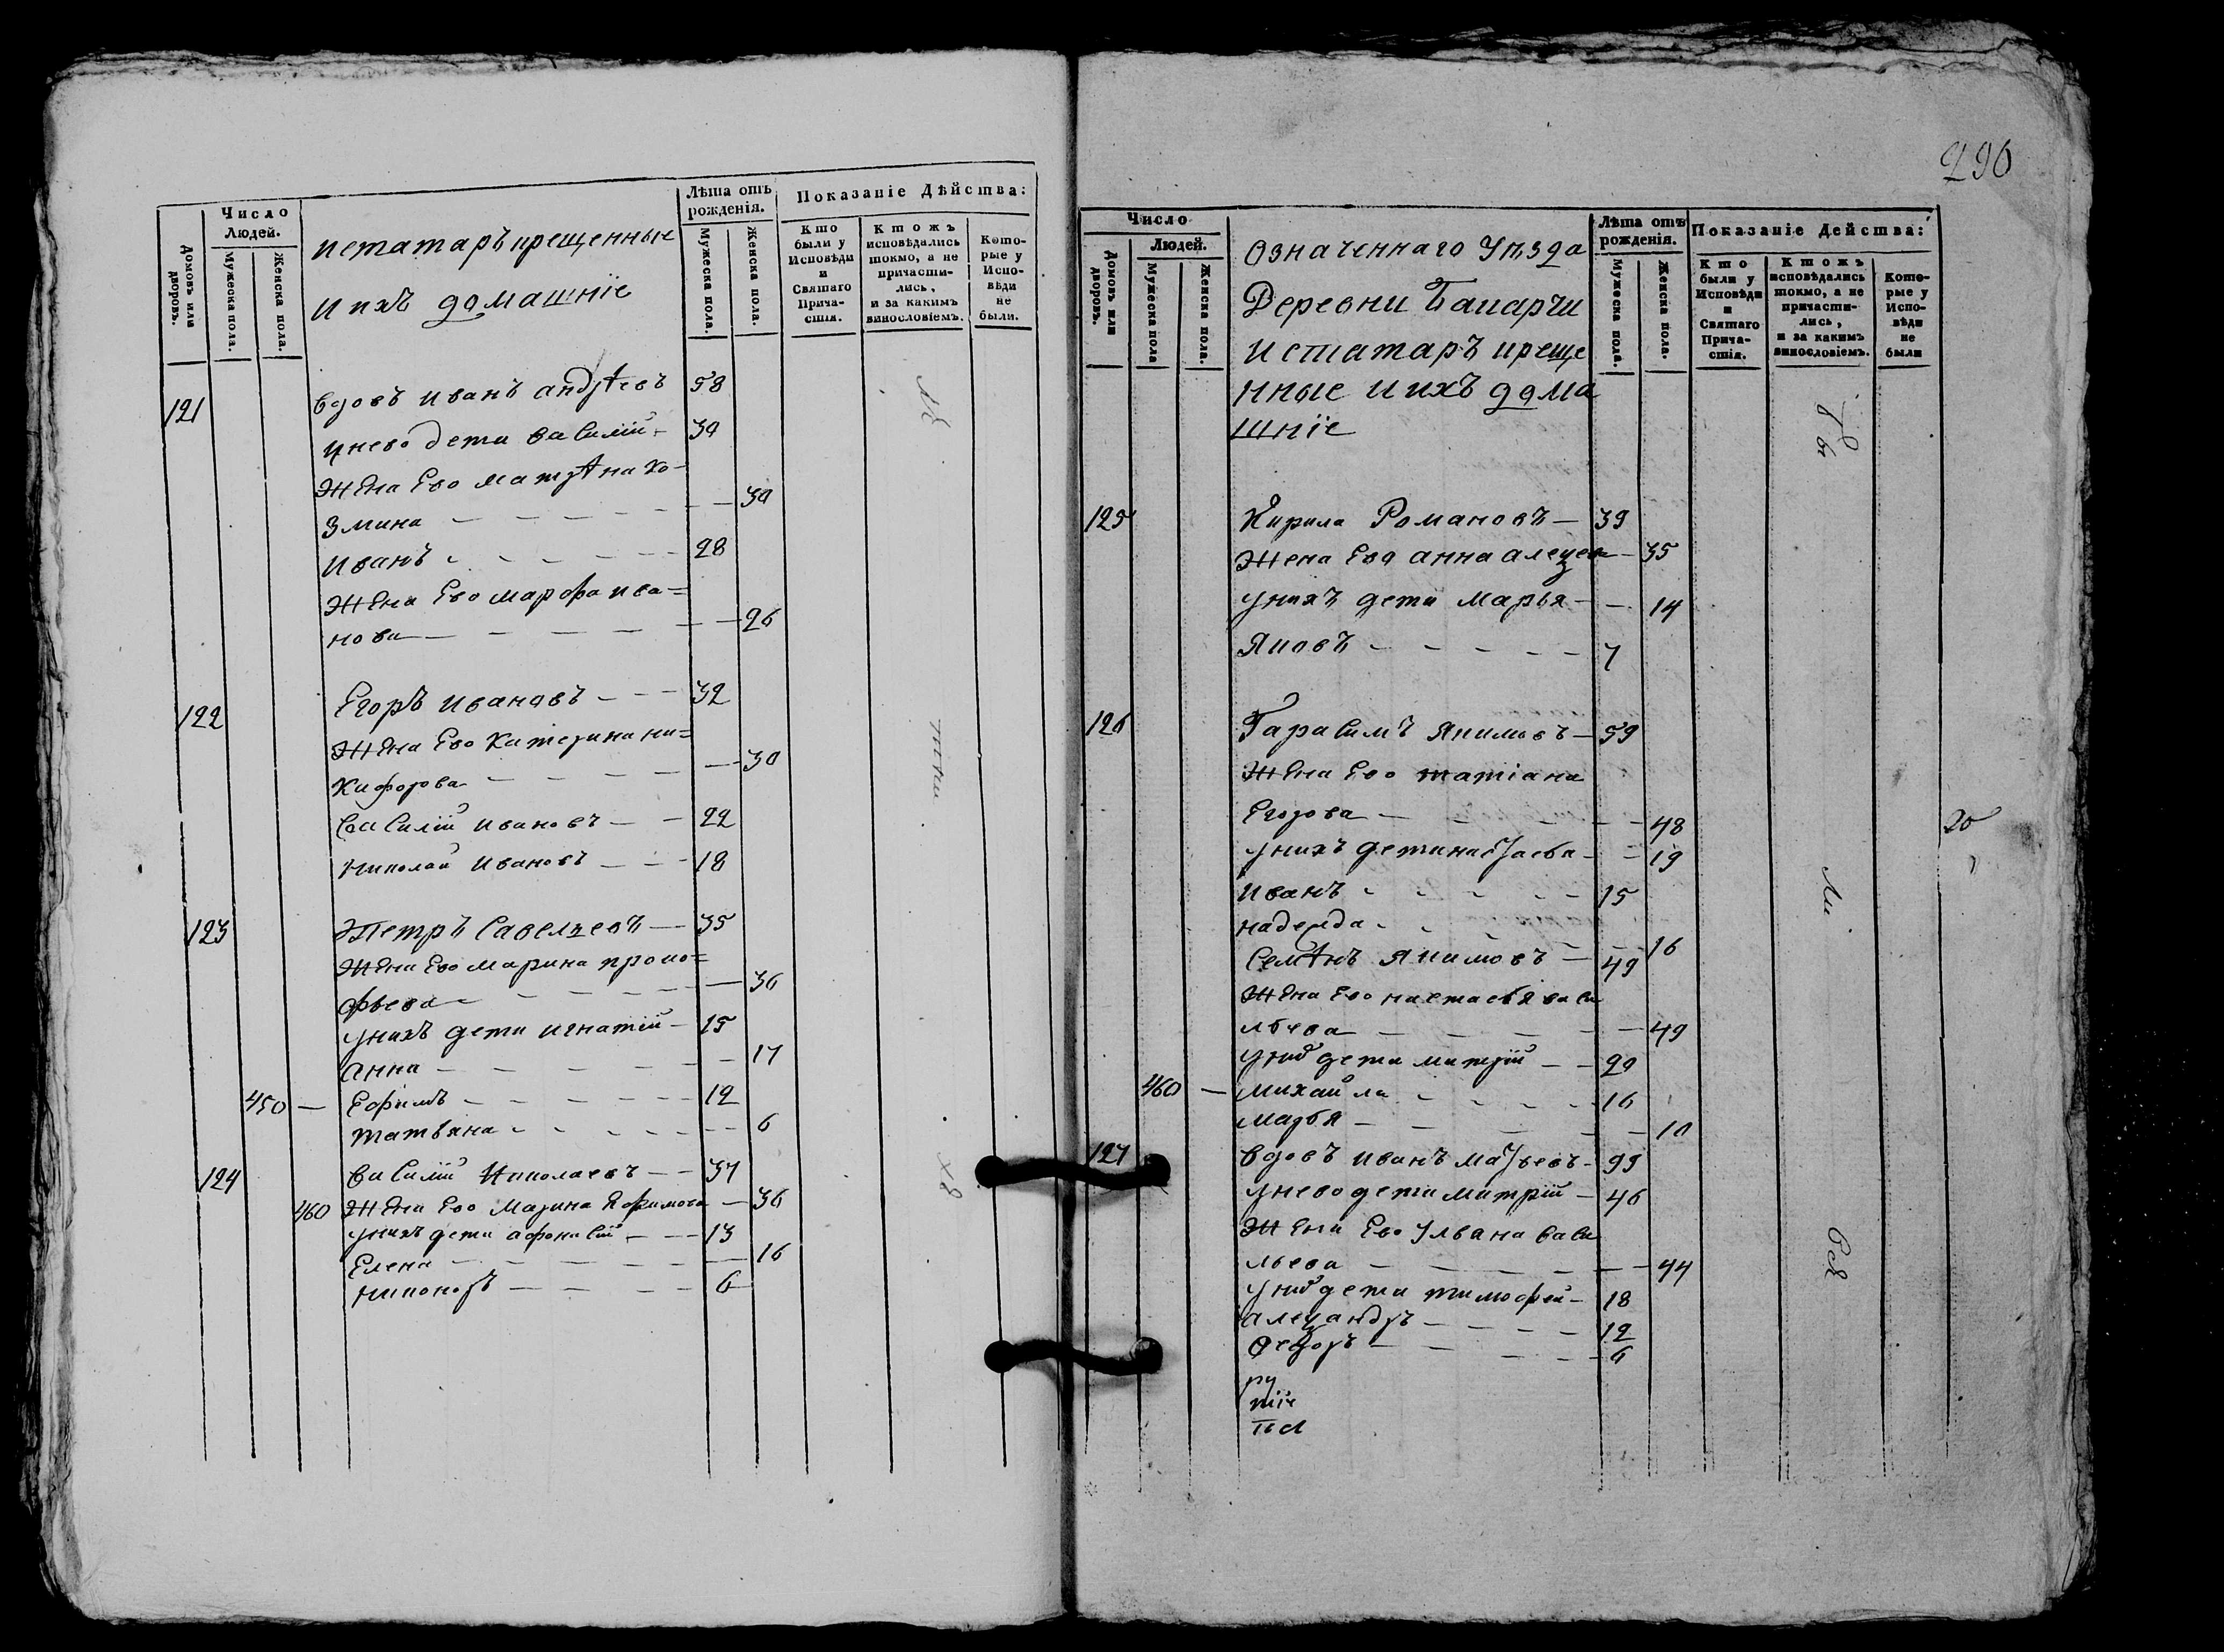 Домовъ или дворовъ.
Число
Людей.
Мужеска пола.
Женска пола.
Лѣта отъ
рожденія.
Мужеска пола.
Женска пола.
Показаніе Дѣйства:
Кто
были у
Исповѣди
и
Святаго
Прича-
стія.
Ктожъ
исповѣдались
токмо, а не
причасти-
лись,
и за какимъ
винословіемъ.
Кото-
рые у
Испо-
вѣди
не
были.
истатаръ крещенные
и ихъ домашнiе
121 вдовъ иванъ андреевъ 58
унево дети василiй 39
жена ево матрена ко-
змина 39
иванъ 28
жена ево марфа ива=
нова 26
122 Егоръ ивановъ 32
жена ево катерина ни=
кифорова 30
василiй ивановъ 22
николай ивановъ 18
123 Петръ савельевъ 35
жена ево марина проко=
фьева 36
унихъ дети игнатiй 15
анна 17
450 Ефимъ 12
татьяна 6
124 василiй николаевъ 37
460 жена ево марина яфимова 36
унихъ дети афонасiй 13
Елена 16
никоноръ 6
290
Домовъ или дворовъ.
Число
Людей.
Мужеска пола
Женска пола.
Лѣта отъ
рожденія.
Мужеска пола.
Женска пола.
Показаніе Действа:
Кто
были у
Исповѣди
и
Святаго
Прича-
стія.
Ктожъ
исповѣдались
токмо, а не
причасти-
лись,
и за какимъ
винословіемъ.
Кото-
рые у
Испо-
вѣди
не
были
означеннаго уѣзда
Деревни
истатаръ креще
нные и ихъ дома
шнiе
125 Кирила Романовъ 39
жена ево анна алеѯев 35
унихъ дети марья 14
яковъ 7
126 Гарасимъ якимовъ 59
жена ево татiана
Егорова 48
20
унихъ дети настасья 19
иванъ 15
надежда 16
семенъ якимовъ 49
жена ево настасья васи
льева 49
уних дети митрiй 29
460 михайла 16
марья 10
127 вдовъ иванъ матвеевъ 99
унево дети митрiй 46
жена ево ульяна васи
льева 44
уних дети тимофей 18
алеѯандръ 12
федоръ 6
ру
тiи